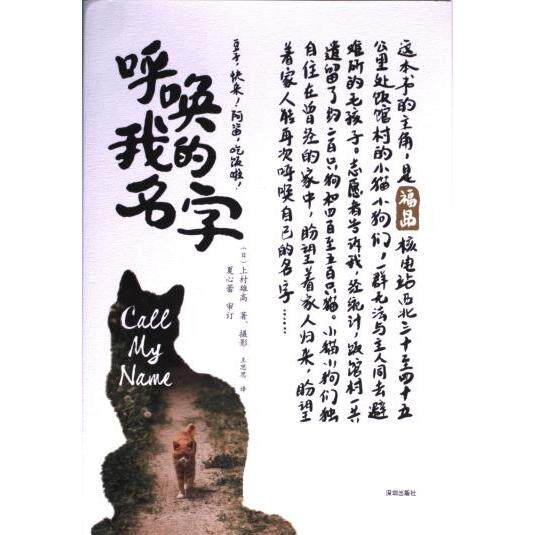 这本书的主角，是福岛核电站西北二十至四十五
公里处饭馆村的小猫小狗们，一群无法与主人同去避
难所的毛孩子。志愿者告诉我，经统计，饭馆村一共
遗留了约二百只狗和四百至五百只猫。小猫小狗们独
自住在曾经的家中，盼望着家人归来，盼望
着家人能再次呼唤自己的名字……
豆子，快来！阿笛，吃饭啦！
呼唤
我的
名字
（日）上村雄高 著、摄影 王思思 译
夏心蕾 审订
Call
My
Name
深圳出版社